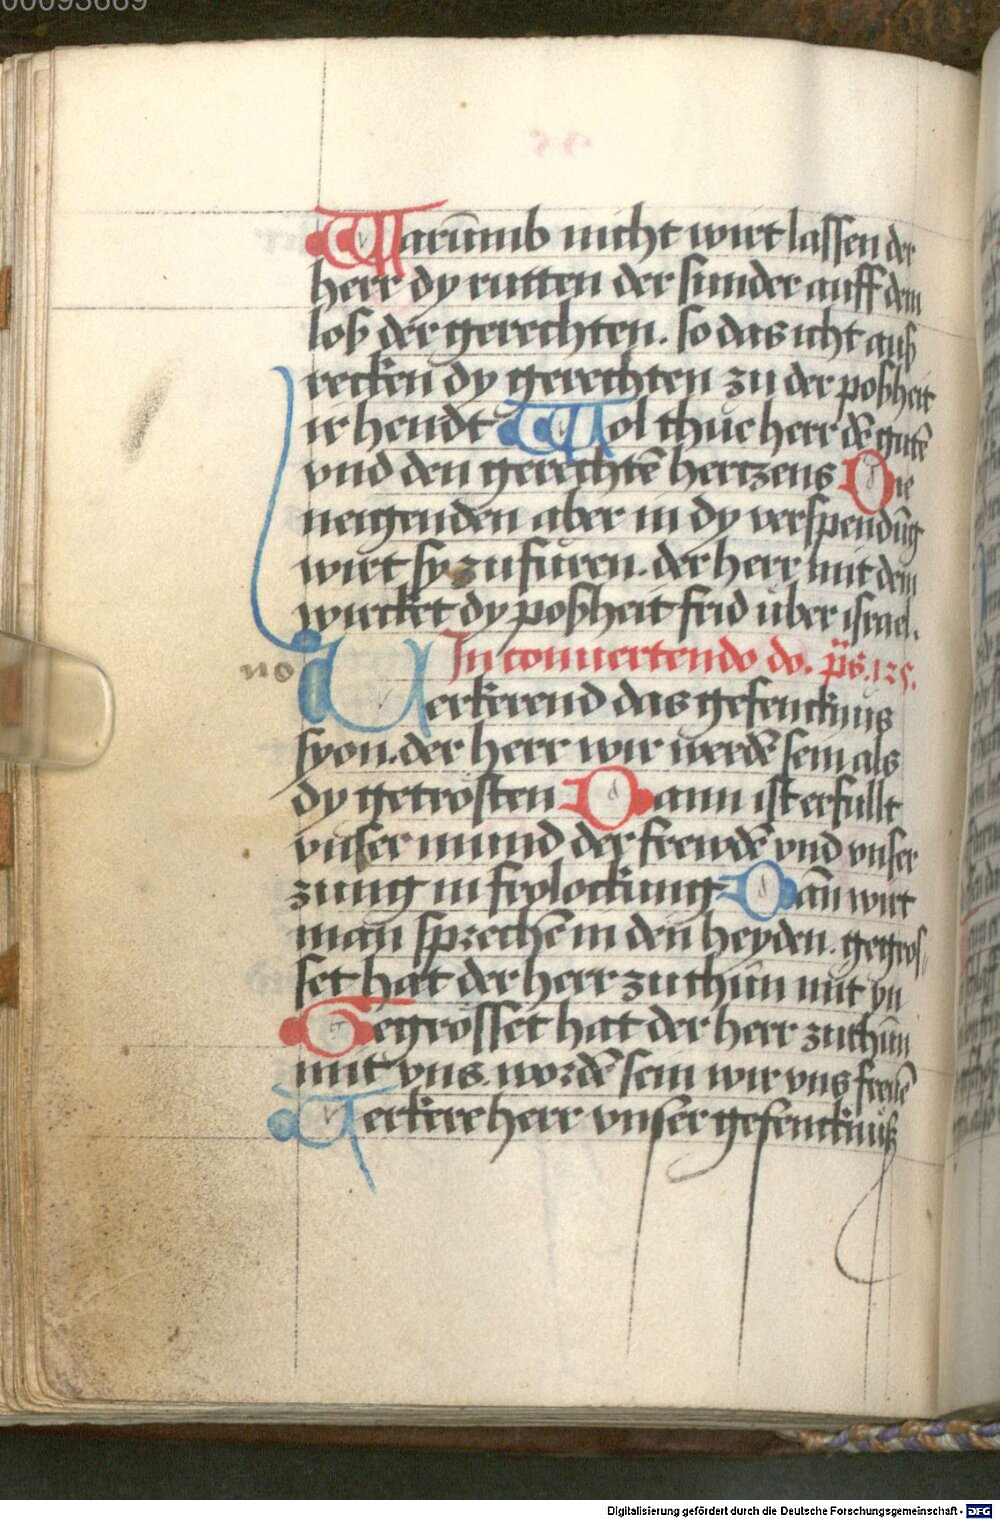 00093669
Warūmb nicht wirt lassen der
herr dy rutten der sunder auff dem
loß der gerechten. so das icht auß
recken dy gerechten zu der poßheit
ir hendt Wol thue herr dē gutē
vnd den gerechtē hertzens Die
neigenden aber in dy verspendūg
wirt sy zu furen. der herr mit dem
wurcket dy poßheit frid uber israel.
In conuertendo do. ps. 125.
Verkerend das gefencknus
syon. der herr wir werdē sein als
dy getrosten Dann ist erfullt
vnser mund der frewdē vnd vnser
zung in frolockung Dān wirt
man sprechē in den heyden. gegros-
set hat der herr zu thūn mit vn
Gegrosset hat der herr zu thūn
mit vns. wordē sein wir vns freuē
Verkere herr vnser gefencknuß
Digitalisierung gefördert durch die Deutsche Forschungsgemeinschaft - DFG